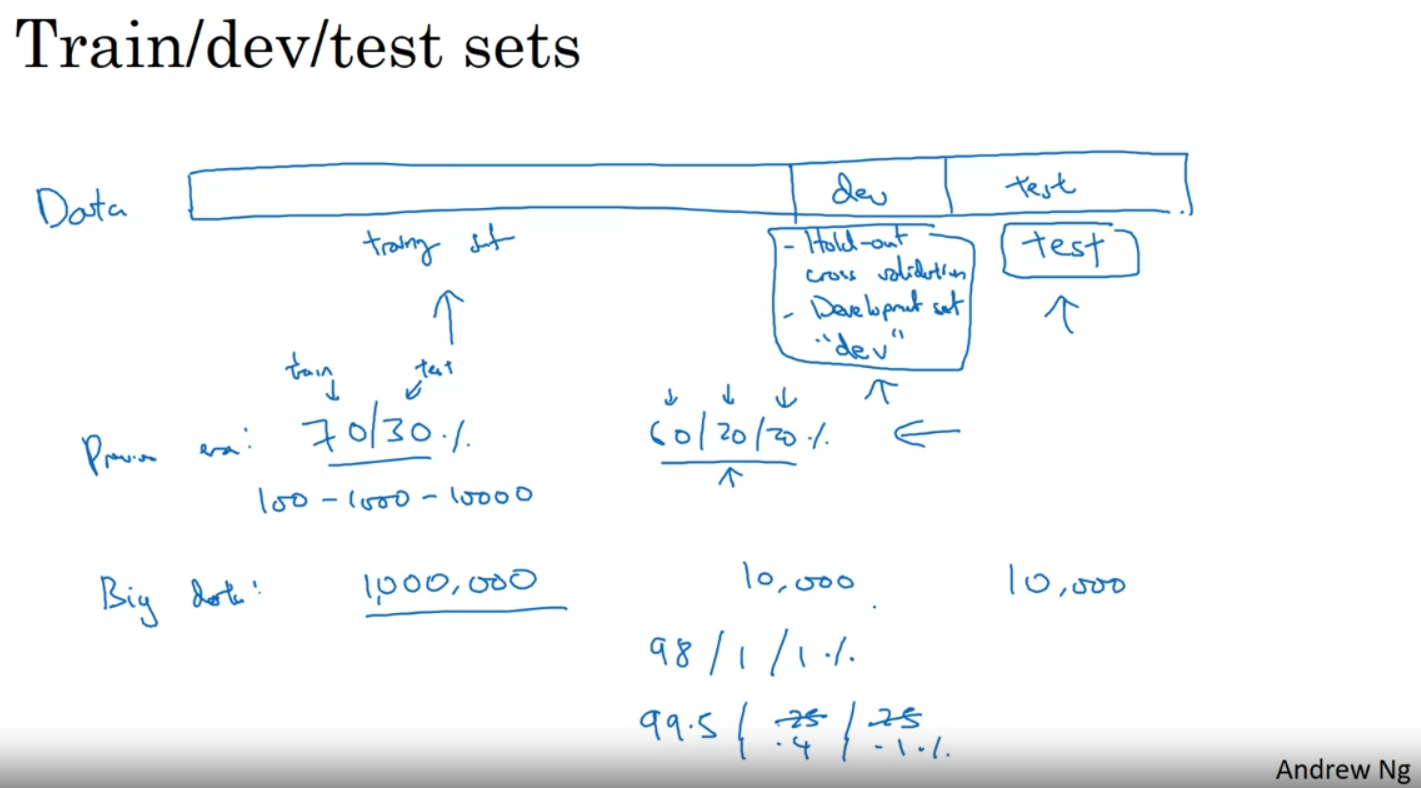 Train/dev/test sets
Data
dev
test
training set
- Hold-out
cross validation
- Development set
"dev"
test
train
test
Previous era:
70/30 %
60/20/20 %
100 - 1000 - 10000
Big data:
1,000,000
10,000
10,000
98/1/1 %
99.5 / .25 / .25
.4 .1 %
Andrew Ng